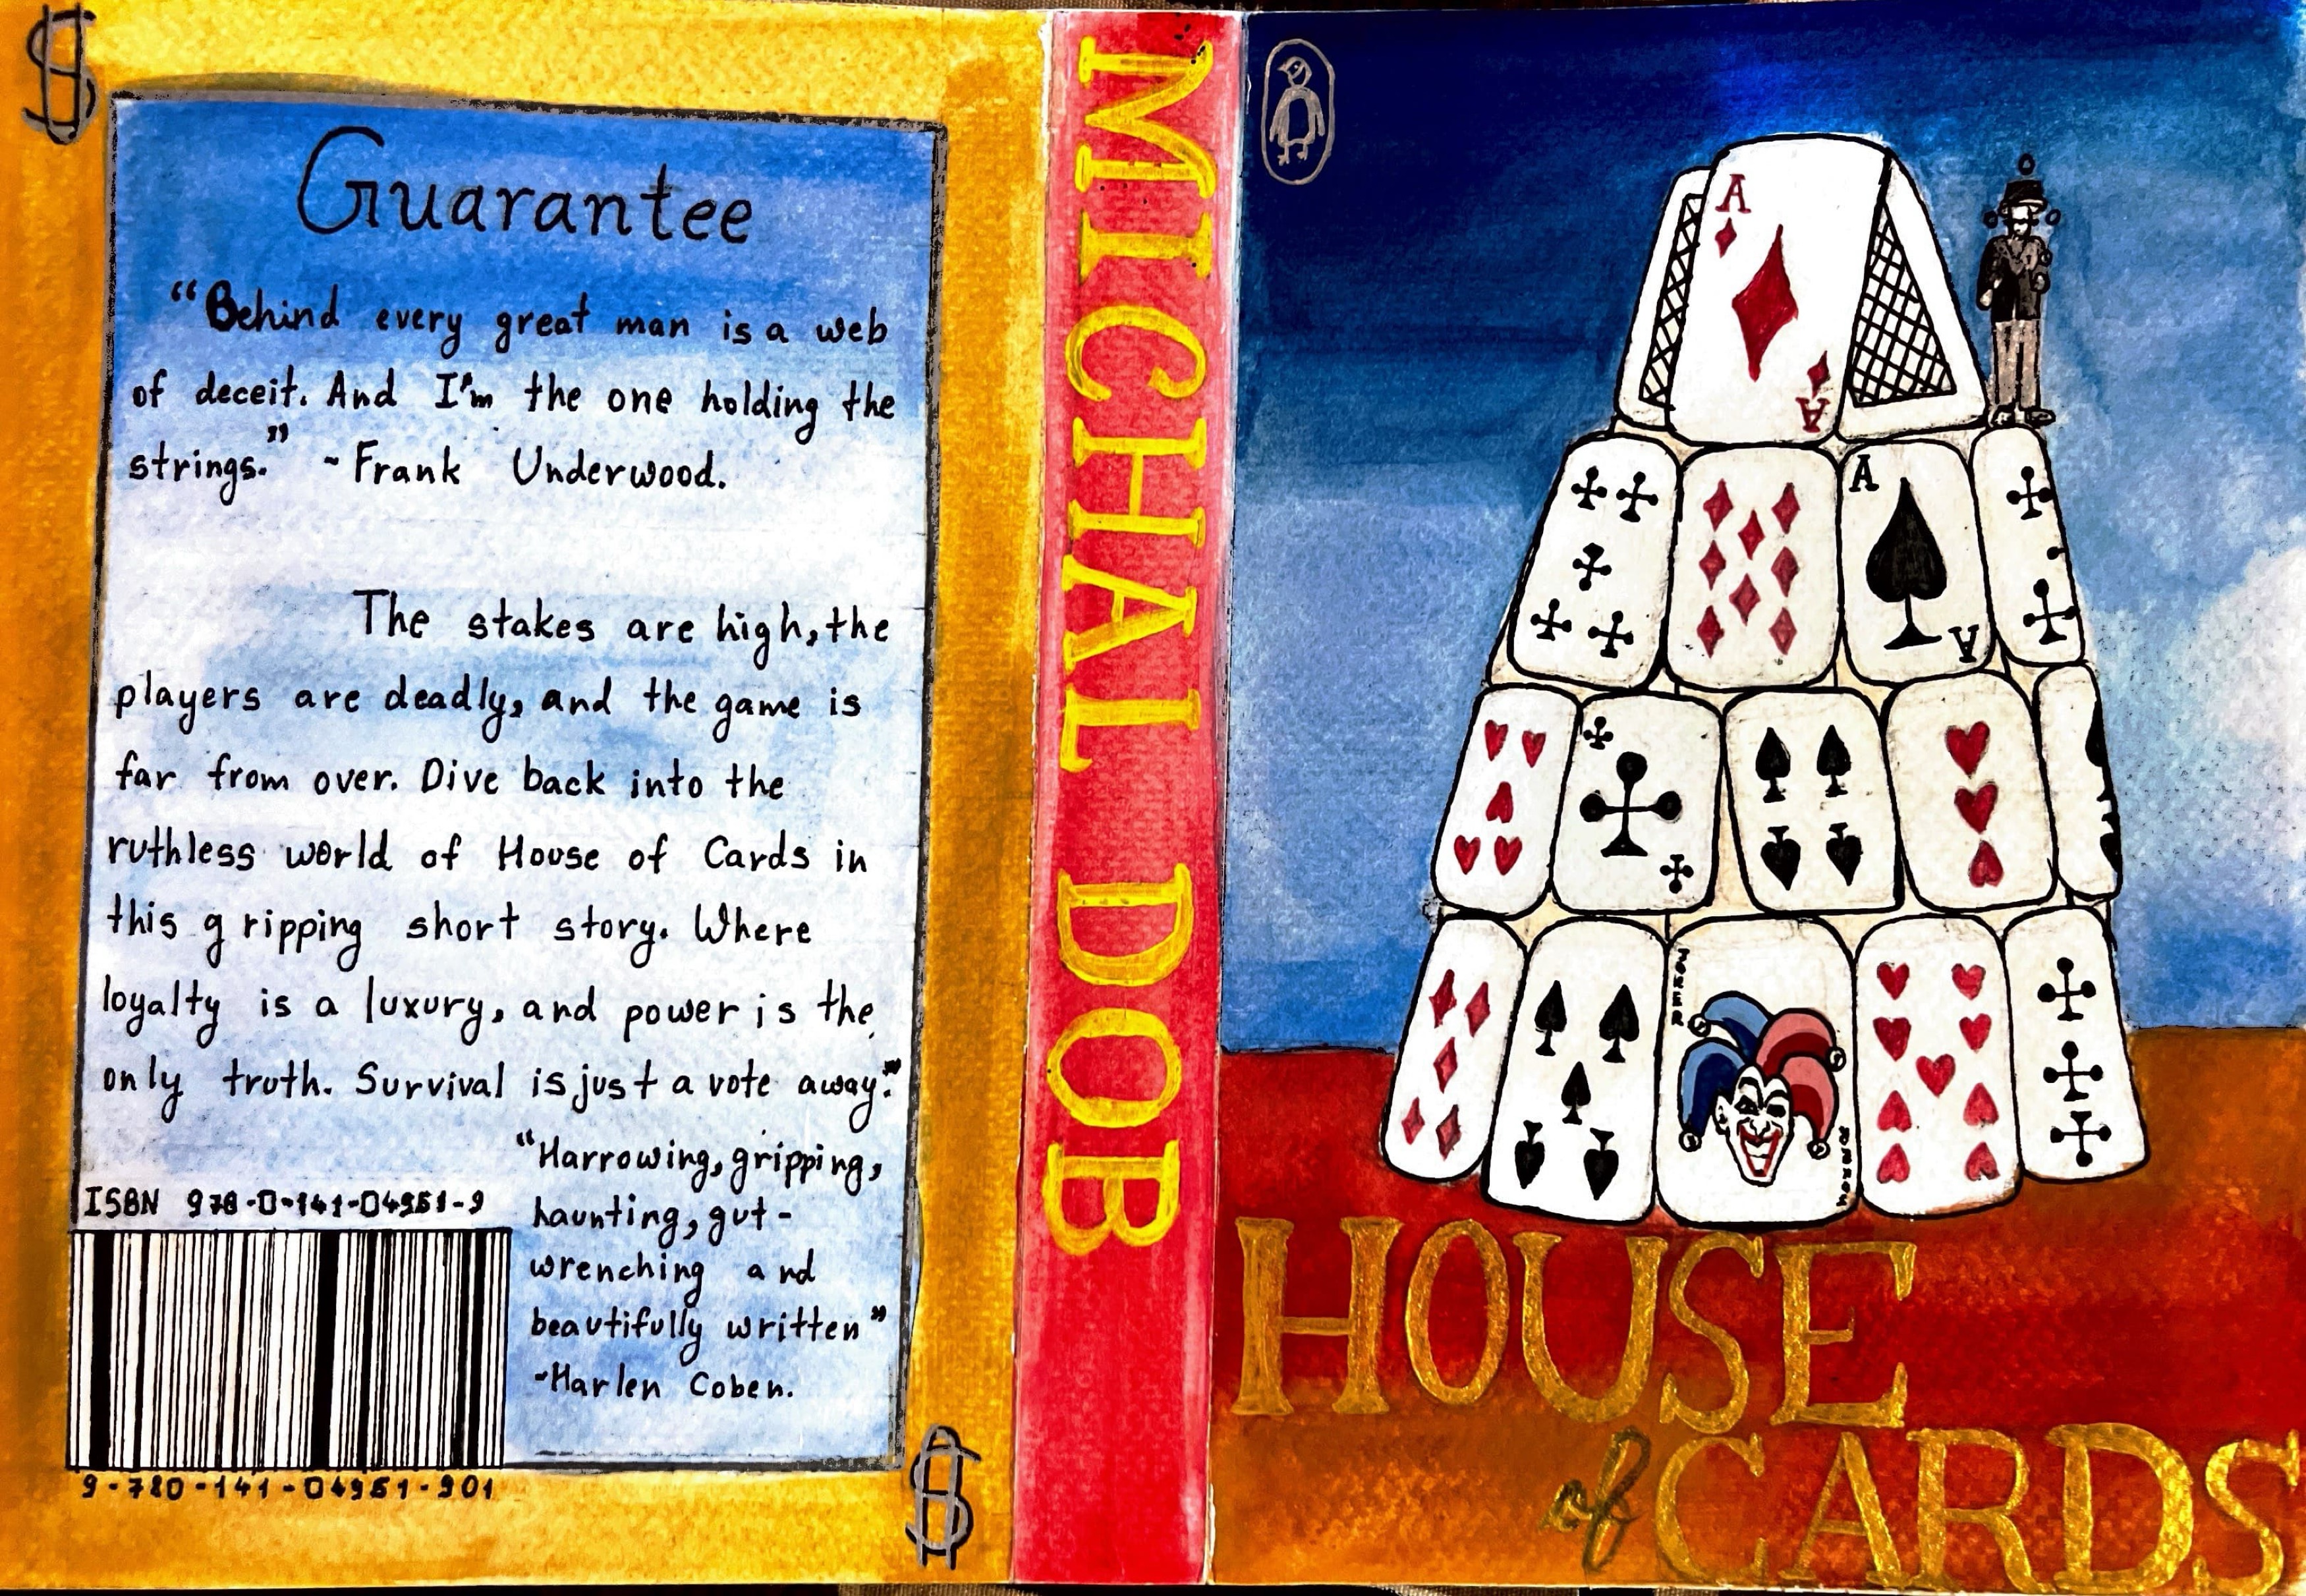 Guarantee
"Behind every great man is a web
of deceit. And I'm the one holding the
strings." ~ Frank Underwood.
The stakes are high, the
players are deadly, and the game is
far from over. Dive back into the
ruthless world of House of Cards in
this gripping short story. Where
loyalty is a luxury, and power is the
only truth. Survival is just a vote away."
"Harrowing, gripping,
haunting, gut-
wrenching and
beautifully written"
-Harlen Coben.
ISBN 978-0-141-04951-9
9-780-141-04951-901
MICHAL DOB
A
A
A
A
HOUSE
of CARDS